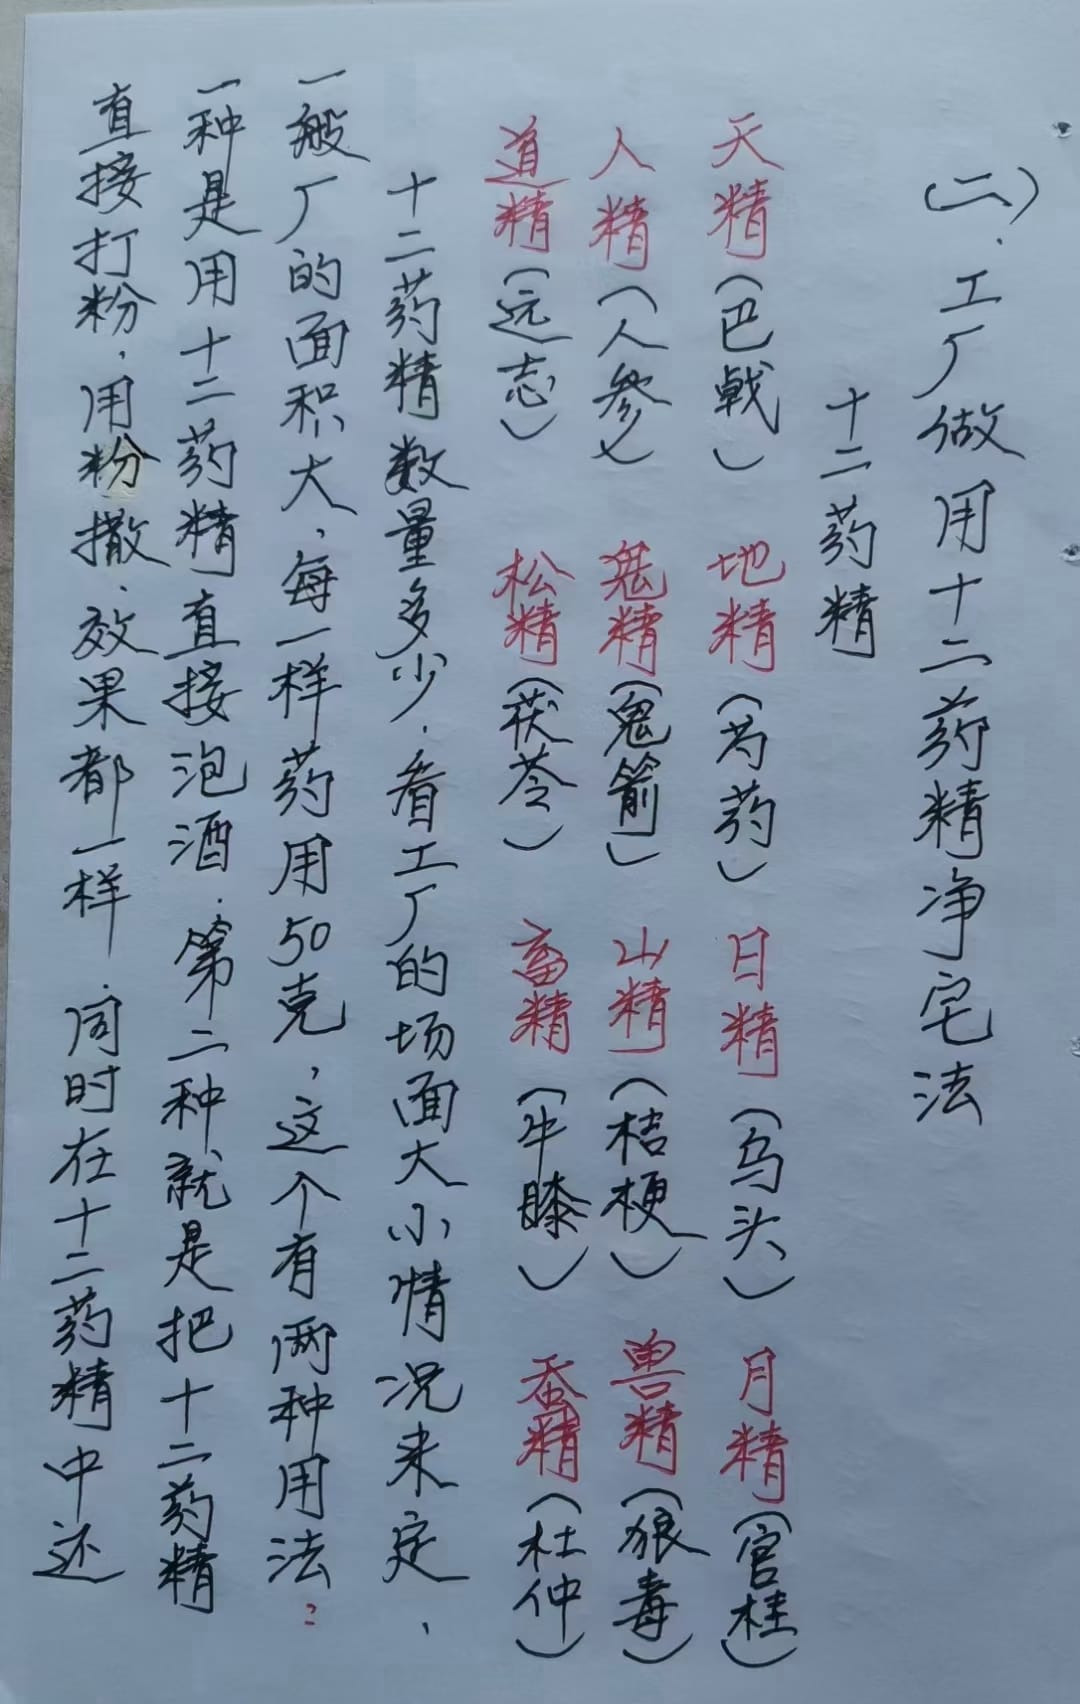 (二).工厂做用十二药精净宅法
十二药精
天精(巴戟) 地精(芍药) 日精(乌头) 月精(官桂)
人精(人参) 鬼精(鬼箭) 山精(桔梗) 兽精(狼毒)
道精(远志) 松精(茯苓) 畜精(牛膝) 蚕精(杜仲)
十二药精数量多少.看工厂的场面大小情况来定、
一般厂的面积大、每一样药用50克,这个有两种用法:
一种是用十二药精直接泡酒.第二种就是把十二药精
直接打粉.用粉撒.效果都一样.同时在十二药精中还